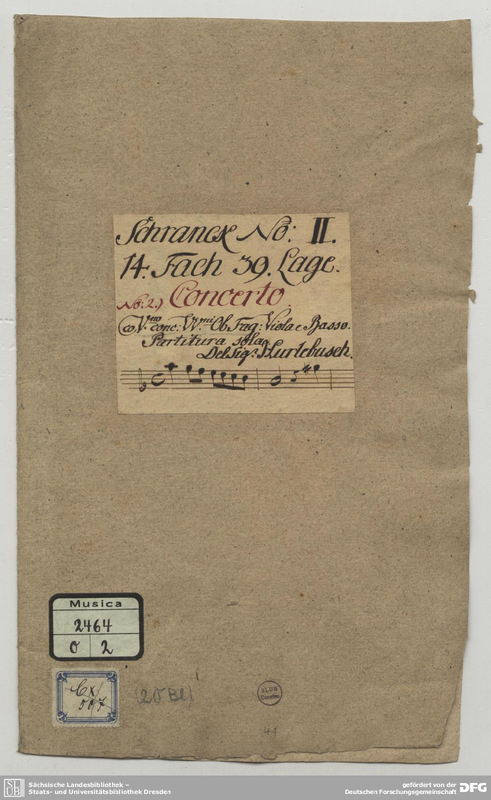 Schranck No: II.
14. Fach 39. Lage.
No: 2.) Concerto.
co VVno conc: VVni Ob. Fag: Viola e Basso.
Partitura sola
Del Sigr. Hurlebusch.
Musica
2464
O 2
Cx
507
(20 Bl)
SLUB
Dresden
41
Sächsische Landesbibliothek –
Staats- und Universitätsbibliothek Dresden
gefördert von der
Deutschen Forschungsgemeinschaft DFG